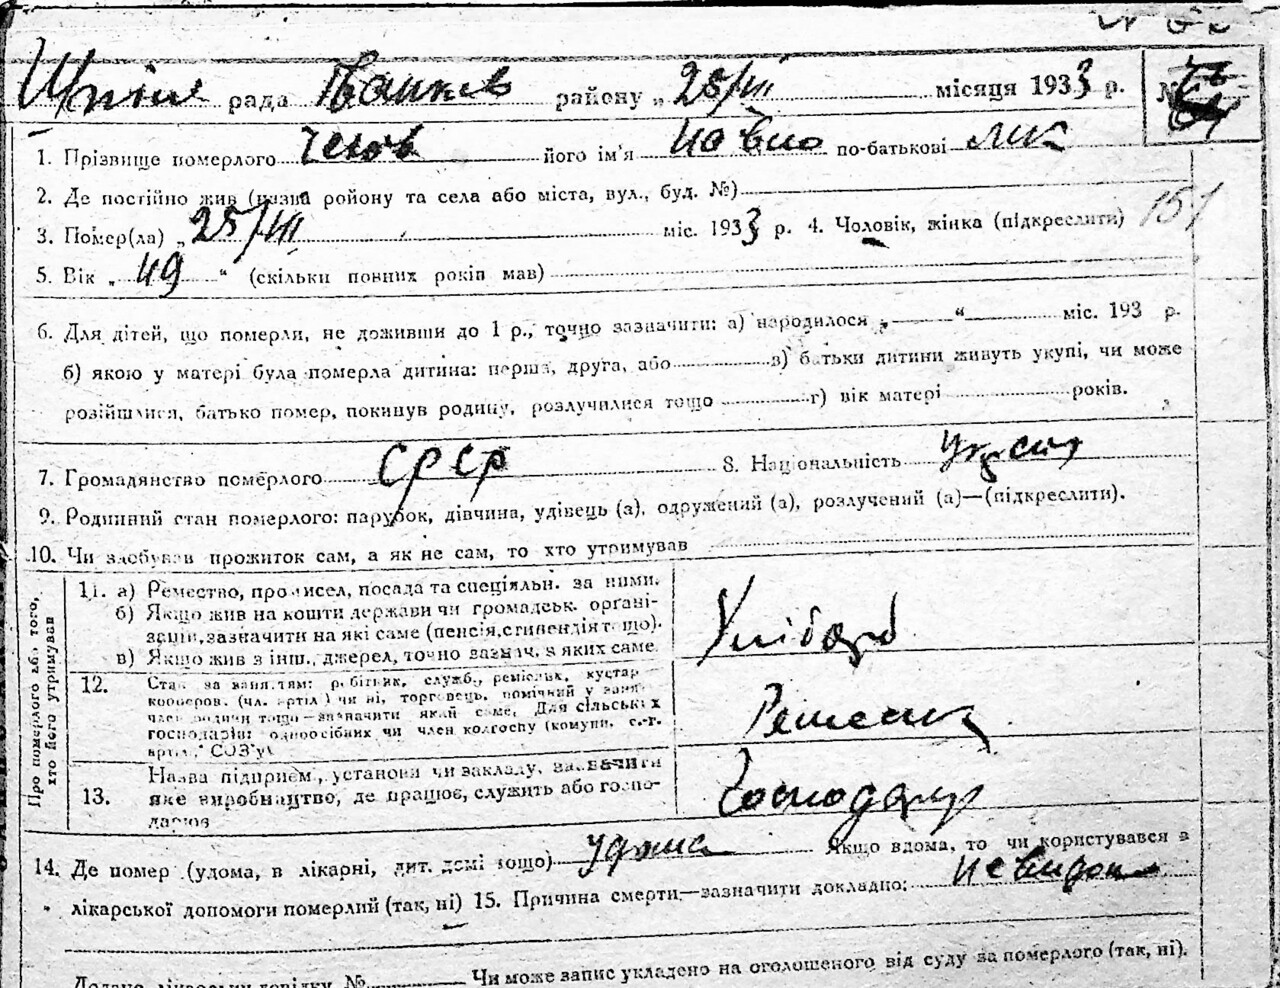 рада района „ 25/III місяця 1933 р. №
1. Прізвище померлого його ім'я по-батькові
2. Де постійно жив (назва ройону та села або міста, вул., буд. №)
3. Помер(ла) „ 25/III міс. 1933 р. 4. Чоловік, жінка (підкреслити) 151
5. Вік „ 49 “ (скільки повних років мав)
6. Для дітей, що померли, не доживши до 1 р., точно зазначити: а) народилося „ “ міс. 193 р.
б) якою у матері була померла дитина: перша, друга, або в) батьки дитини живуть укупі, чи може
розійшлися, батько помер, покинув родину, розлучилися тощо г) вік матері років.
7. Громадянство померлого СРСР 8. Національність
9. Родинний стан померлого: парубок, дівчина, удівець (а), одружений (а), розлучений (а)—(підкреслити).
10. Чи здобував прожиток сам, а як не сам, то хто утримував
Про померлого або того, хто його утримував
11. а) Ремество, промисел, посада та спеціяльн. за ними.
б) Якщо жив на кошти держави чи громадськ. органі-
зацій, зазначити на які саме (пенсія, стипендія тощо).
в) Якщо жив з інш., джерел, точно зазнач. з яких саме.
12. Стан за заняттям: робітник, службо, ремісник, кустар
кооперов. (чл. артілі) чи ні, торговець, помічний у занят
член родини тощо—зазначити який саме. Для сільських
господарів: одноосібник чи член колгоспу (комуни, с.-г.
артілі, СОЗ'у)
13. Назва підприєм., установи чи закладу, зазначити
яке виробництво, де працює, служить або госпо-
дарює
Господар
14. Де помер (удома, в лікарні, дит. домі тощо) удома Якщо вдома, то чи користувався з
лікарської допомоги померлий (так, ні) 15. Причина смерти—зазначити докладно: невидом
Додано лікарську довідку № Чи може запис укладено на оголошеного від суду за померлого (так, ні).